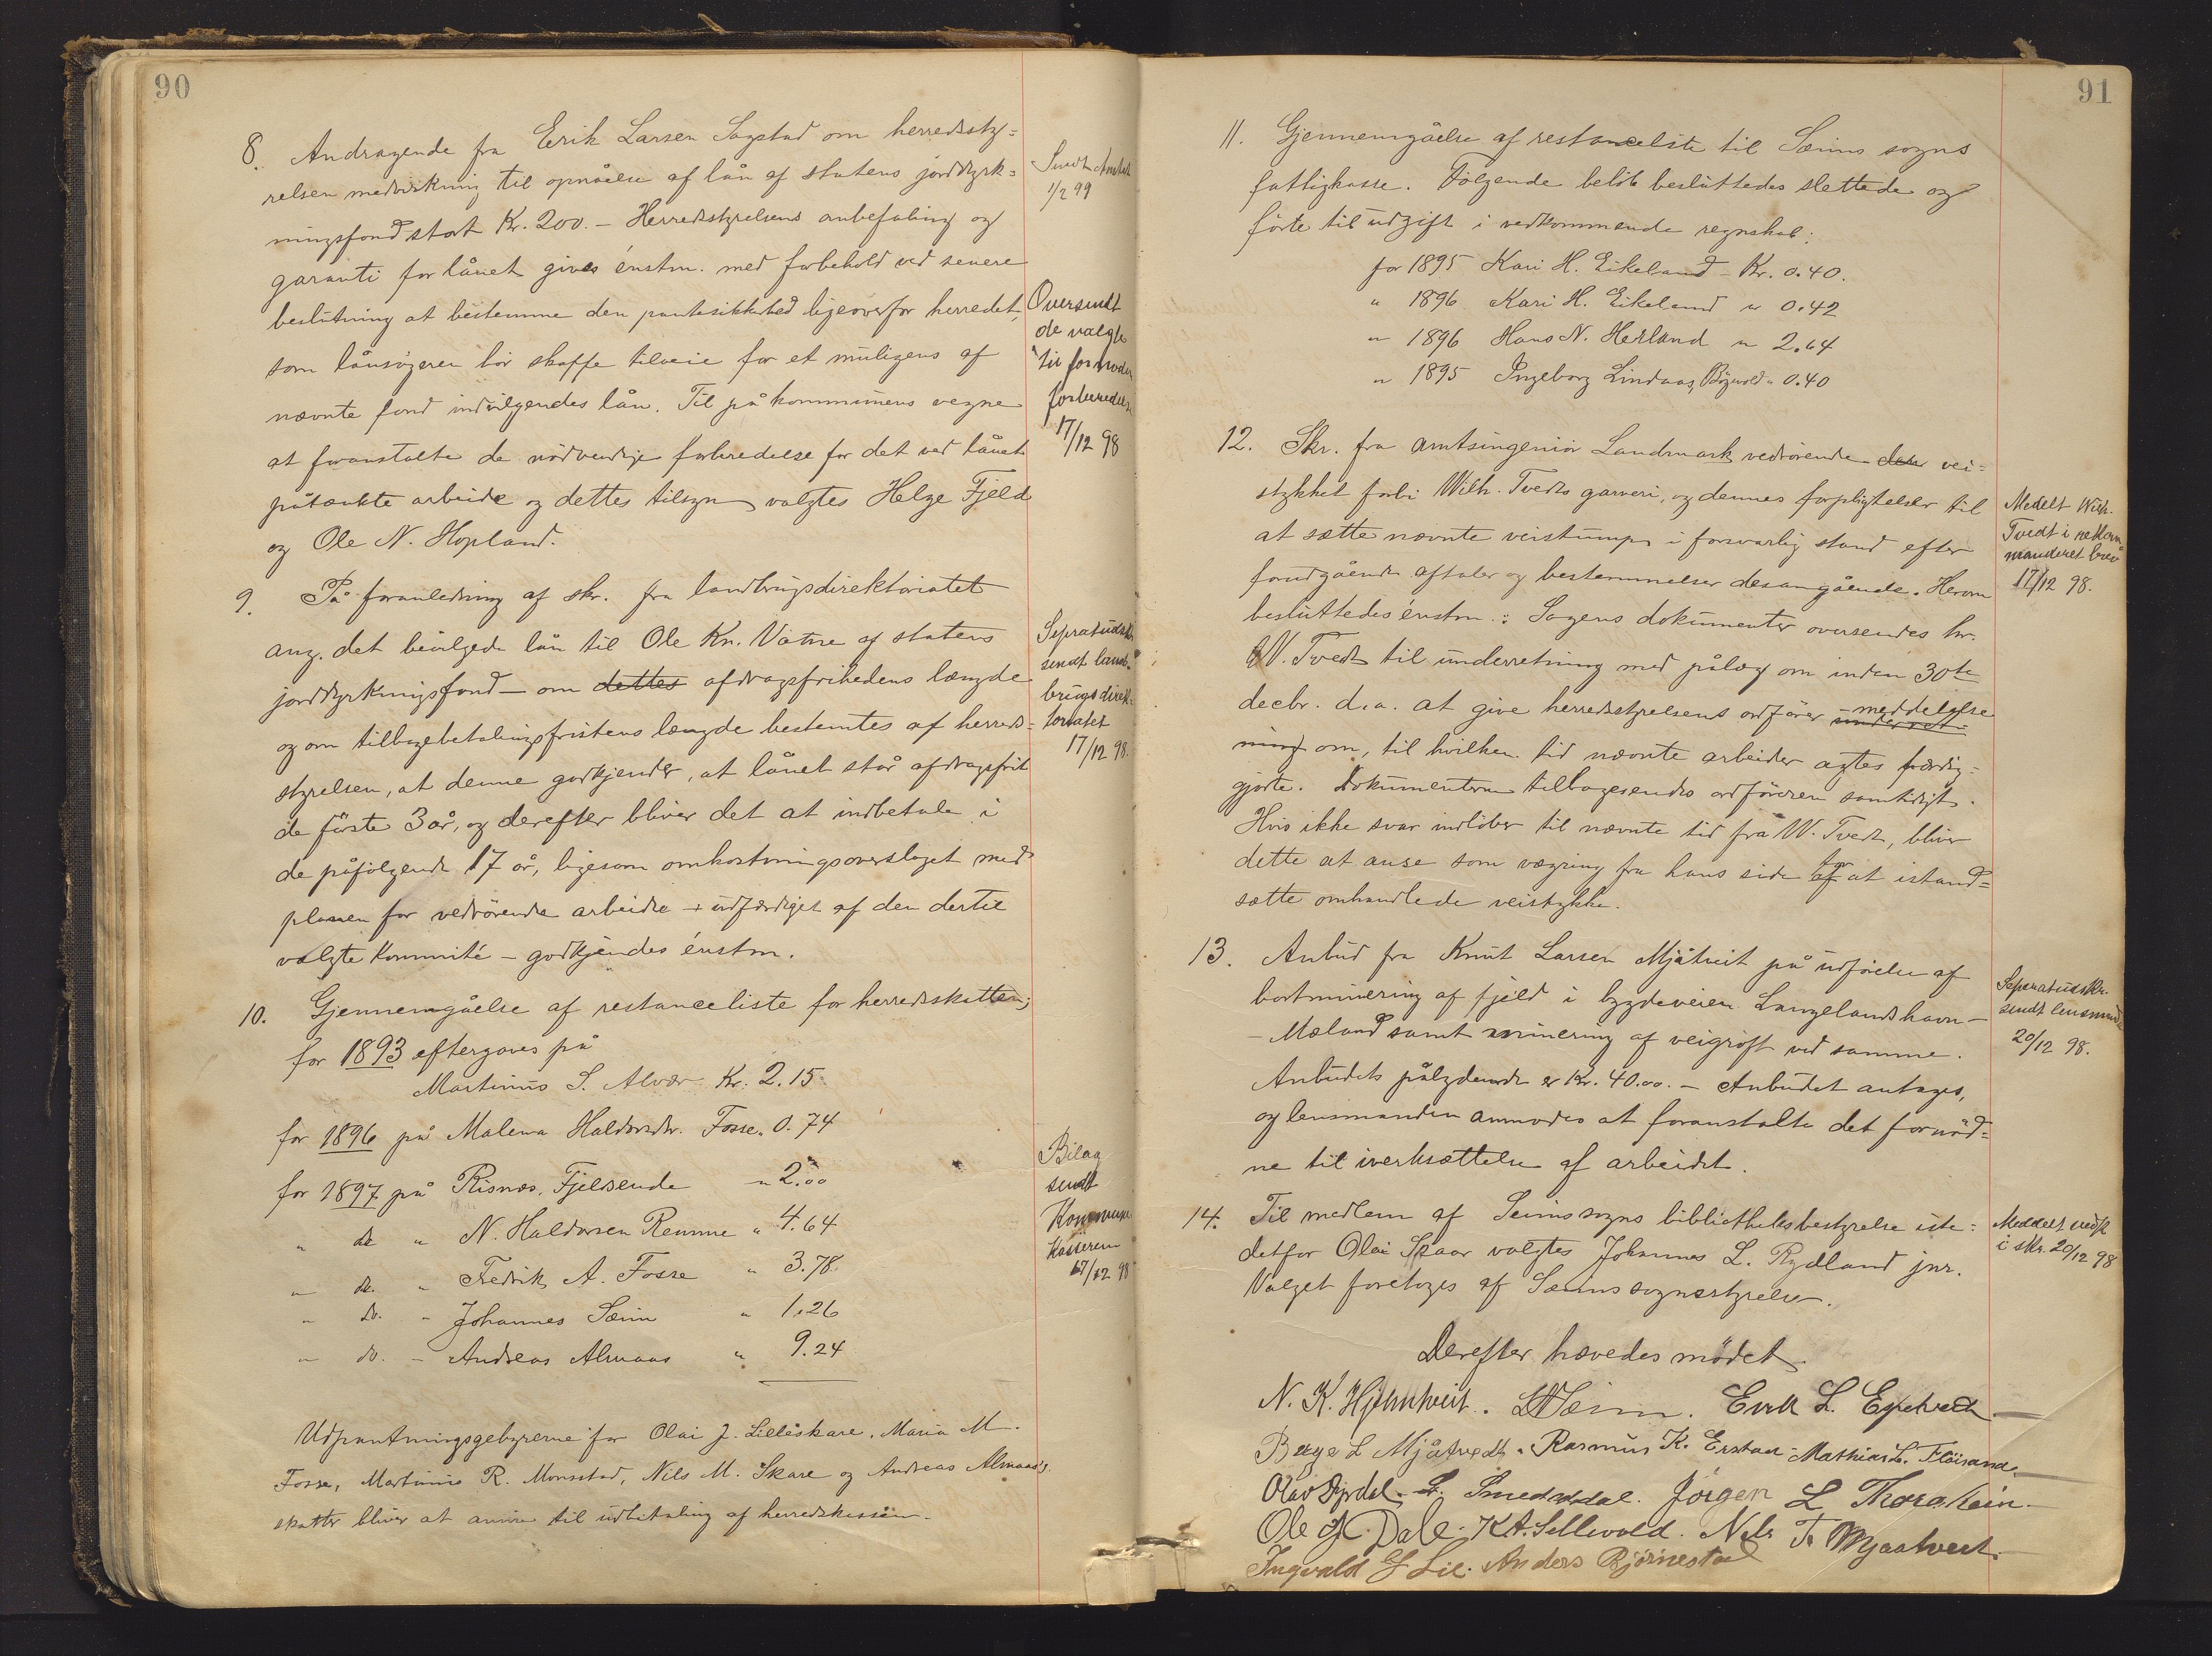 90
8. Andragende fra Erik Larsen Sagstad om herredssty-
relsen medvirkning til opnåelse af lån af statens jorddyrk-
ningsfond stort Kr. 200.- Herredsstyrelsens anbefaling og
garanti for lånet gives énstm. med forbehold ved senere
beslutning at bestemme den pantesikkerhed ligeoverfor herredet,
som lånsøgeren bør skaffe tilveie for et muligens af
nævnte fond indvilgendes lån. Til på kommunens vegne
at foranstalte de nødvendige forberedelse for det ved lånet
påtænkte arbeide og dettes tilsyn valgtes Helge Fjeld
og Ole N. Hopland.
Sendt Amtet
1/2 99
Oversendt
de valgte
til fornøden
forberedelse
17/12 98
9. På foranledning af skr. fra landbrugsdirektoriatet
ang. det bevilgede lån til Ole Kn. Vatne af statens
jorddyrkningsfond - om dettes afdragsfrihedens længde
og om tilbagebetalingsfristens længde bestemtes af herreds-
styrelsen, at denne godkjender, at lånet står afdragsfrit
de første 3 år, og derefter bliver det at indbetale i
de påfølgende 17 år, ligesom omkostningsoverslaget med
planen for vedrørende arbeide + udfærdiget af den dertil
valgte Kommité - godkjendes énstm.
Sepratudskr
sendt land-
brugsdirek-
toriatet
17/12 98.
10. Gjennemgåelse af restanceliste for herredsskatten;
for 1893 eftergaves på
Martinus S. Alvær Kr. 2.15
for 1896 på Malena Haldorsdtr. Fosse „ 0.74
for 1897 på Risnæs, Fjeldsende „ 2.00
„ do „ N. Haldorsen Remme „ 4.64
„ do. „ Fredrik A. Fosse „ 3.78
„ do. „ Johannes Sæim „ 1.26
„ do. „ Andreas Almaas „ 9.24
Bilag
sendt
Kommune
Kasseren
17/12 98
Udpantningsgebyrerne for Olai J. Lilleskare, Maria M.
Fosse, Martinus R. Monsstad, Nils M. Skare og Andreas Almaas's
skatter bliver at anvise til udbetaling af herredskassen.
91
11. Gjennemgåelse af restanceliste til Sæims sogns
fattigkasse. Følgende beløb besluttedes slettede og
førte til udgift i vedkommende regnskab:
for 1895 Kari H. Eikeland - Kr. 0.40.
„ 1896 Kari H. Eikeland „ 0.42
„ 1896 Hans N. Herland „ 2.64
„ 1895 Ingeborg Lindaas, „ 0.40
12. Skr. fra amtsingeniør Landmark vedrørende den vei-
stykket forbi Wilh. Tvedts garveri, og dennes forpligtelser til
at sætte nævnte veistump i forsvarlig stand efter
forudgående aftaler og bestemmelser desangående. Herom
besluttedes énstm.: Sagens dokumenter oversendes hr.
W. Tvedt til underretning med pålæg om inden 30te
decbr. d.a. at give herredsstyrelsens ordfører meddelelse underret-
ning om, til hvilken tid nævnte arbeider agtes færdig-
gjorte. Dokumenterne tilbagesendes ordføreren samtidigt.
Hvis ikke svar indløber til nævnte tid fra W. Tvedt, bliver
dette at anse som vægring fra hans side for af at istand-
sætte omhandlede veistykke.
Medelt Wilh.
Tvedt i rekom
manderet brev
17/12 98.
13. Anbud fra Knut Larsen Mjåtveit på udførelse af
bortminering af fjeld i bygdeveien Langelandshavn -
- Mæland samt minering af veigrøft ved samme.
Anbudets pålydende er Kr. 40.00. - Anbudet antages,
og lensmanden anmodes at foranstalte det fornød-
ne til iverksættelse af arbeidet.
Seperatudskr.
sendt lensmand
20/12 98.
14. Til medlem af Seims sogns bibliotheksbestyrelse iste-
detfor Olai Skaar valgtes Johannes L. Rydland jnr.
Valget foretoges af Sæims sognestyrelse.
Meddelt vedk
i skr. 20/12 98
Derefter hævedes mødet.
N. K. Hjelmtveit. Sæim. Erik L. Eknedt
Berge L Mjåtvedt. Rasmus K. Erstad - Mathias L. Fløisand.
Olav Dyrdal. L. Smedsdal. Jørgen L Thorsheim.
Ole Dale. K A. Sellevold. Nils T. Mjaatveit.
Ingvald G Lie. Anders Bjørnestad